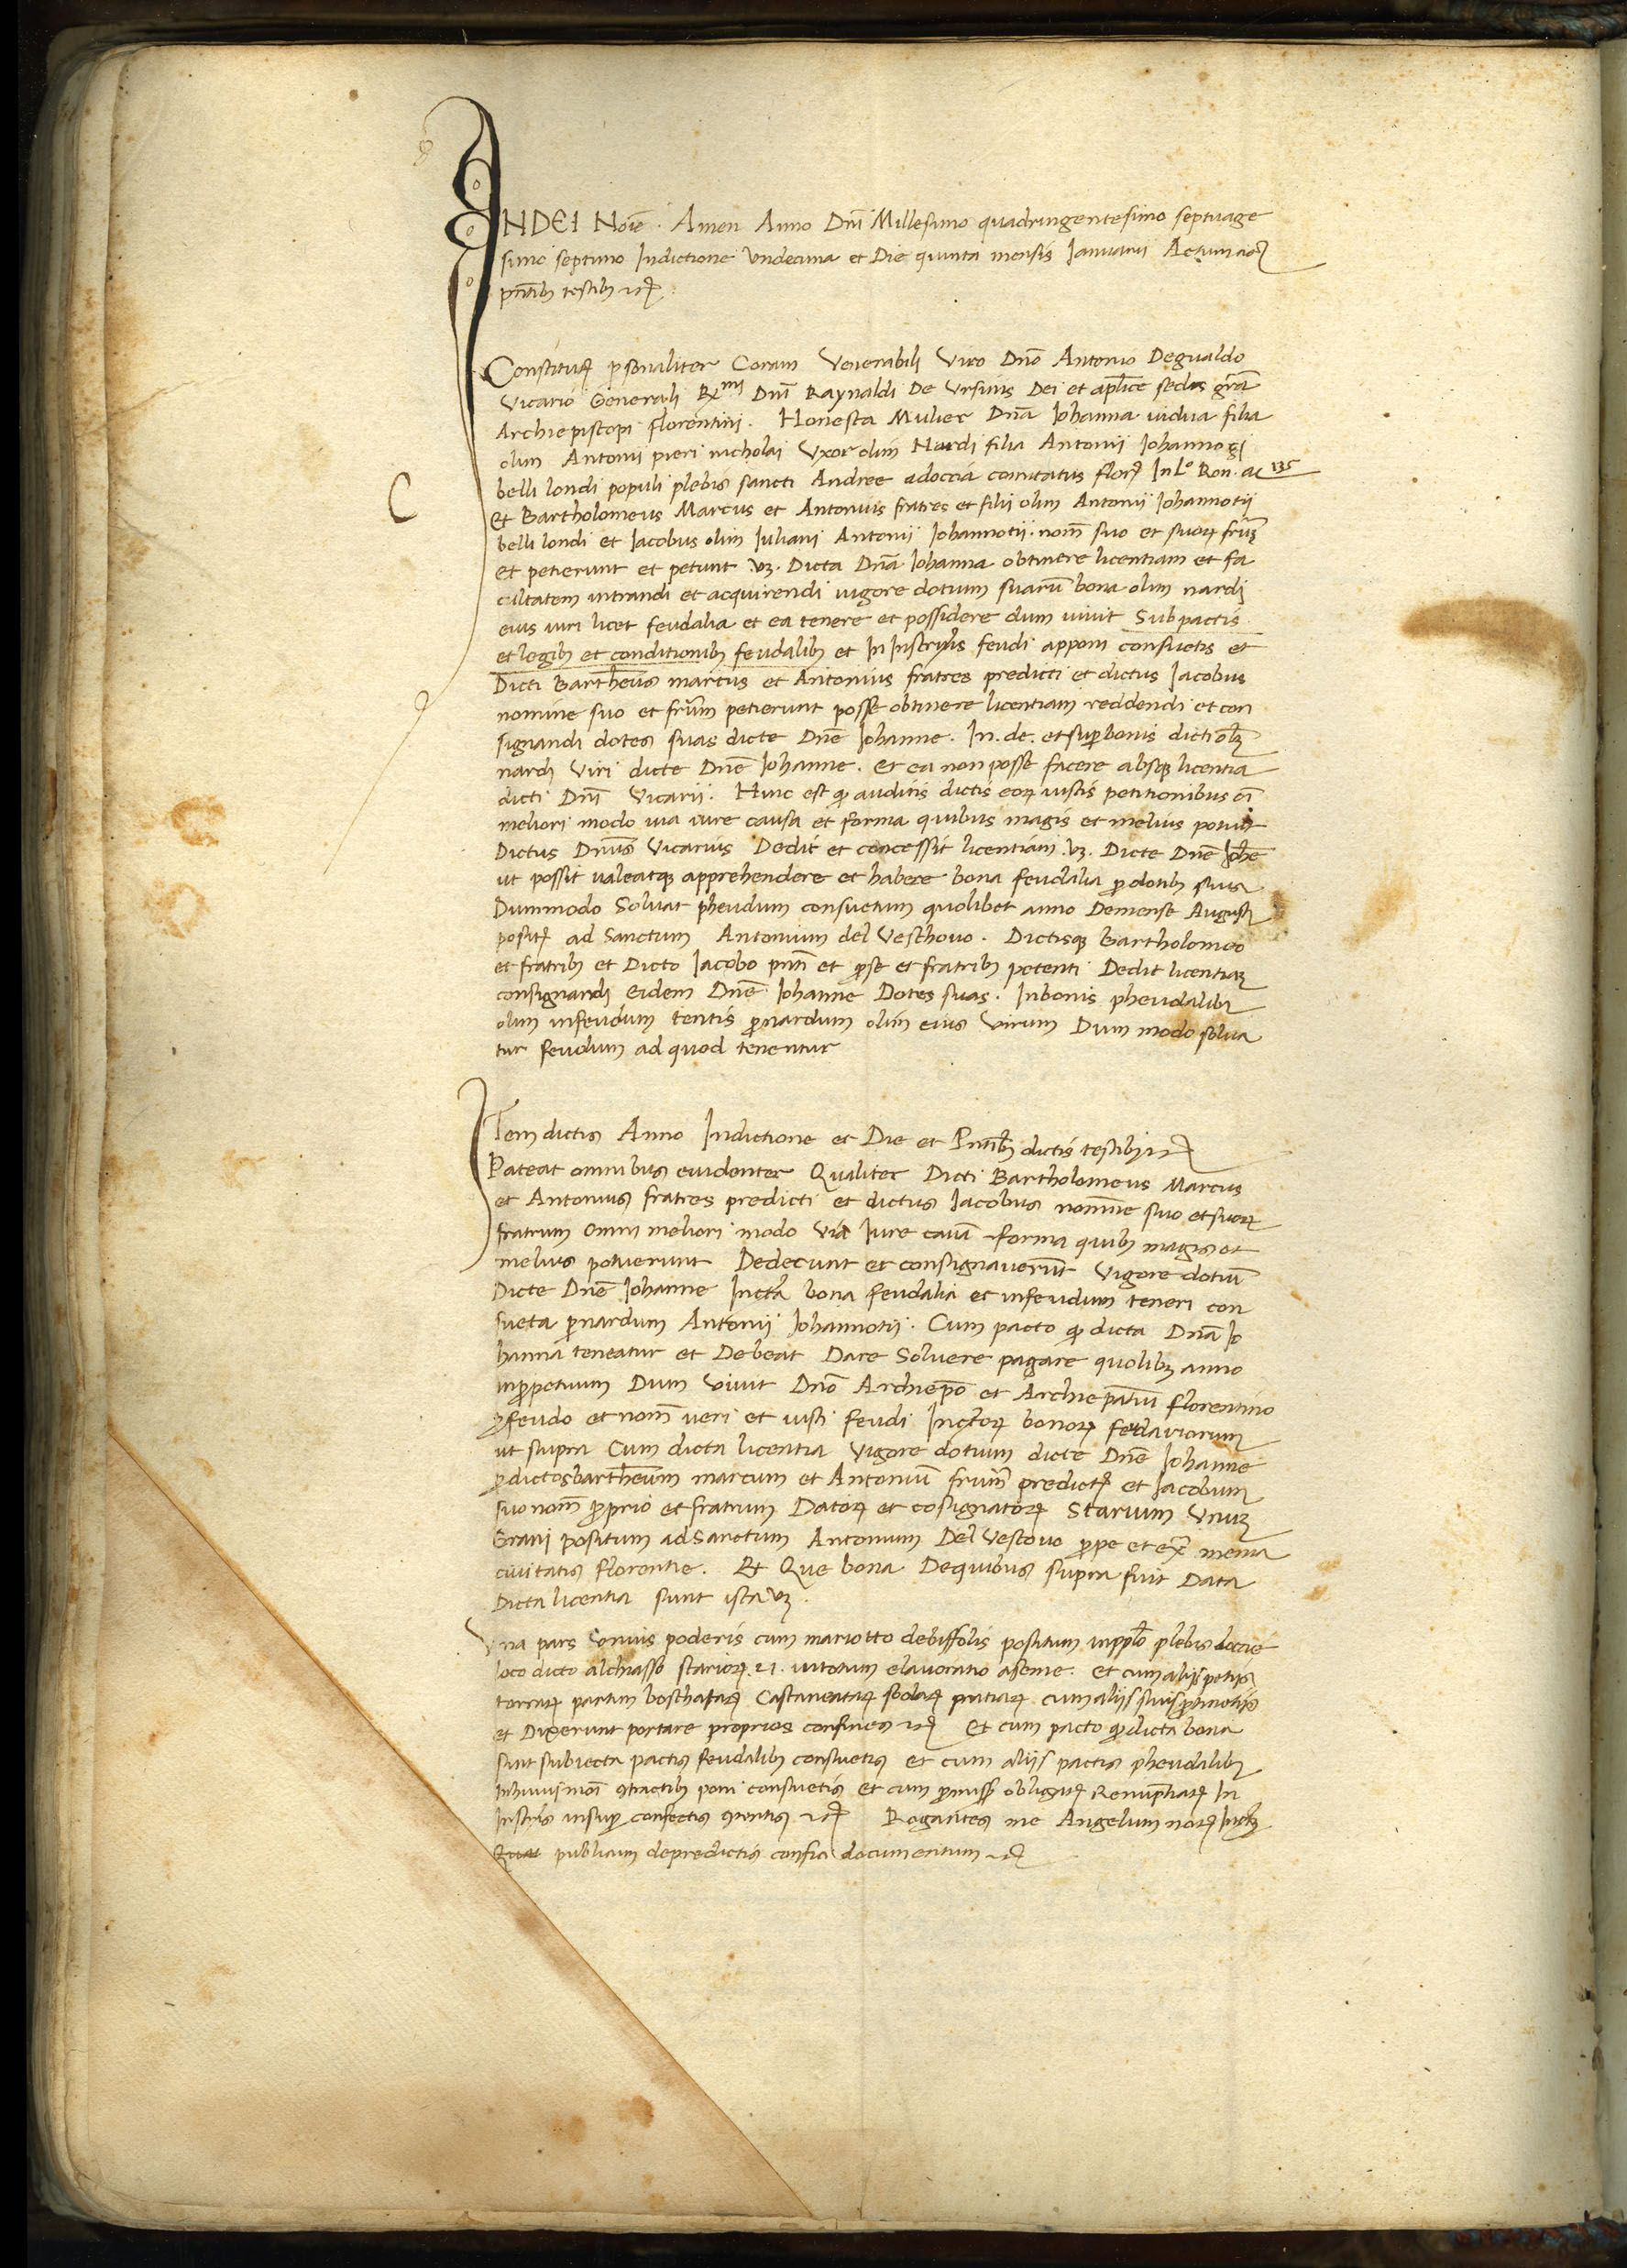 INDEI Noīe. Amen Anno Dnī Millesimo quadringentesimo septuage
simo septimo Indictione Undecima et Die quinta mensis Ianuarii Actum
pntibꝫ testibꝫ
Constitutꝭ psonaliter Coram Venerabili Viro Dnō Antonio Degualdo
Vicario Generali Rmi Dnī Raynaldi De Ursinis Dei et aplice sedis grā
Archiepiscopi florentini. Honesta Mulier Dnā Iohanna vidua filia
olim Antonii pieri nicholai Uxor olim Nardi filii Antonii Iohannogi
belli londi populi plebis sancti Andree adoccia comitatus florꝭ In Lo Ron. ac 135
C
Et Bartholomeus Marcus et Antonius fratres et filii olim Antonii Iohannotii
belli londi et Iacobus olim Iuliani Antonii Iohannotii. nomē suo et suoꝝ frum
et petierunt et petunt vꝫ. Dicta Dnā Iohanna obtinere licentiam et fa
cultatem intrandi et acquirendi vigore dotium suarū bona olim nardi
eius viri licet feudalia et ea tenere et possidere dum vivit Sub pactis
et legibꝫ et conditionibꝫ feudalibꝫ et In Instrutis feudi apponi consuetis et
Dicti Bartheus marcus et Antonius fratres predicti et dictus Iacobus
nomine suo et frum petierunt posse obtinere licentiam reddendi et con
signandi dotes suas dicte Dnē Iohanne. In. de. et sup bonis dicti olim
nardi Viri dicte Dnē Iohanne. et ea non posse facere absqꝫ licentia
dicti Dnī Vicarii. Hinc est qꝫ auditis dictis eoꝝ iustis petitionibus oī
meliori modo via iure causa et forma quibus magis et melius potuit
Dictus Dnūs Vicarius Dedit et concessit licentiam. vꝫ. Dicte Dnē Iohē
ut possit valeatqꝫ apprehendere et habere bona feudalia p dotibꝫ suis
Dummodo Solvat pheudum consuetum quolibet anno Demense Augusti
positꝭ ad Sanctum Antonium del Veschovo. Dictisqꝫ Bartholomeo
et fratribꝫ et Dicto Iacobo pntī et pse et fratribꝫ petenti Dedit licentiam
consignandi Eidem Dnē Iohanne Dotes suas. Inbonis pheudalibꝫ
olim infeudum tentis p nardum olim eius Virum Dum modo solva
tur feudum ad quod tenentur
Item dictis Anno Indictione et Die et Pntibꝫ dictis testibꝫ
Pateat omnibus evidenter Qualiter Dicti Bartholomeus Marcus
et Antonius fratres predicti et dictus Iacobus nomine suo et suoꝝ
fratrum omni meliori modo Via Iure causa forma quibꝫ magis et
melius potuerunt Dederunt et consignaverunt Vigore dotiū
Dicte Dnē Iohanne Incta bona feudalia et infeudum teneri con
sueta p nardum Antonii Iohannotii. Cum pacto qꝫ dicta Dnā Io
hanna teneatur et Debeat Dare Solvere pagare quolibꝫ anno
inppetuum Dum vivit Dnō Archiepō et Archiepatui florentino
p feudo et nomē veri et iusti feudi Inctoꝝ bonoꝝ fedariorum
ut supra Cum dicta licentia Vigore dotium dicte Dnē Iohanne
p dictos bartheum marcum et Antoniū frum predictꝭ et Iacobum
suo nomē pprio et fratrum Datoꝝ et cosignatoꝝ Starium Unum
Grani positum ad Sanctum Antonium Del Vescovo ppe et extra menia
civitatis florentie. Et Que bona Dequibus supra fuit Data
Dicta licentia sunt ista vꝫ.
Una pars Unius poderis cum mariotto debiffolis positum inpplo plebis doccie
loco dicto alchiasso starioꝝ .21. intotum elavoratio aseme. et cum aliis petiis
terraꝝ partim boschataꝝ Castaneataꝝ sodaꝝ pratiaꝝ cum aliis suis ptinetiis
et Dixerunt portare proprios confines et cum pacto qꝫ dicta bona
sint subiecta pactis feudalibꝫ consuetis et cum aliis pactis pheudalibꝫ
Inhuiusmōi contractibꝫ poni consuetis et cum pmissꝭ obligatꝭ Renuptiatꝭ In
Instris insup confectis Rogantes me Angelum notꝭ
publicum depredictis confici documentum